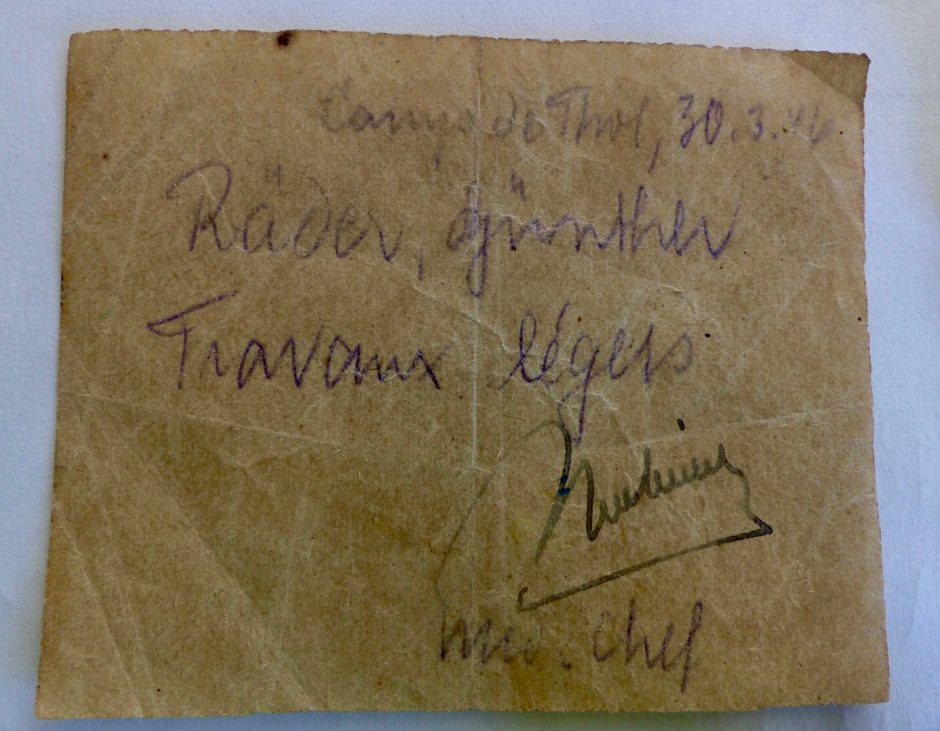 Camp de Thol, 30.3.46
Räder, Günther
Travaux légers
Méd. Chef